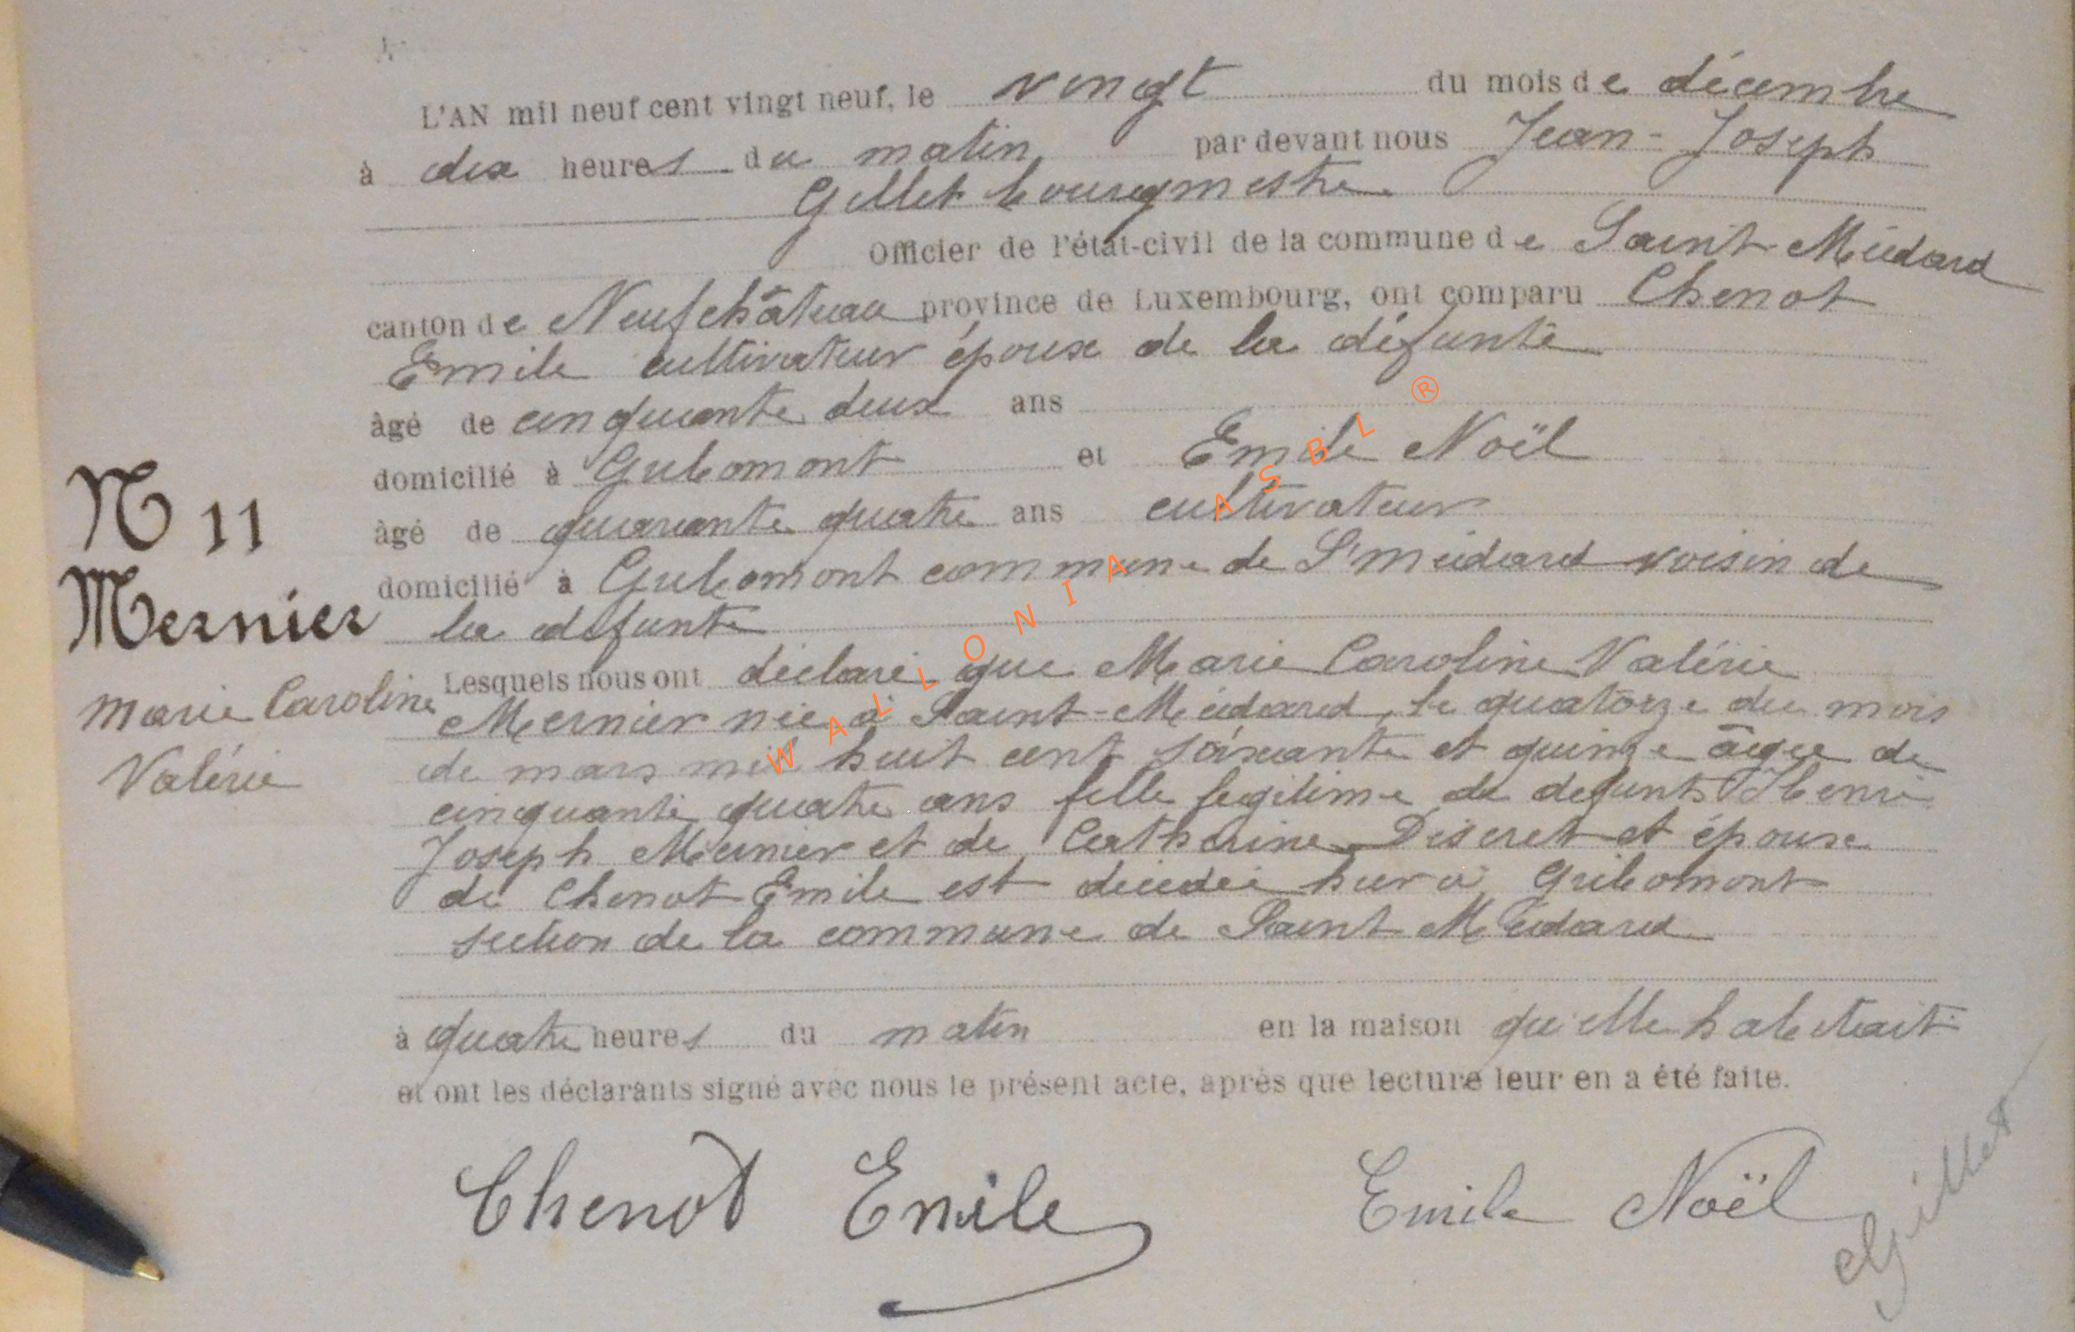 L'AN mil neuf cent vingt neuf, le vingt du mois de décembre
à dix heures du matin par devant nous Jean-Joseph
Gillet bourgmestre
Officier de l'état-civil de la commune de Saint Médard
canton de Neufchâteau province de Luxembourg, ont comparu Chenot
Emile cultivateur époux de la défunte
âgé de cinquante deux ans
domicilié à Gribomont et Emile Noël
âgé de quarante quatre ans cultivateur
domicilié à Gribomont commune de St médard voisin de
la défunte
N 11
Mernier
Marie Caroline
Valérie
Lesquels nous ont déclaré que Marie Caroline Valérie
Mernier née à Saint-Médard, le quatorze du mois
de mars mil huit cent soixante et quinze âgée de
cinquante quatre ans fille légitime de défunts Henri
Joseph Mernier et de Catherine Discret et épouse
de Chenot Emile est décédée hier à Gribomont
section de la commune de Saint Médard
à quatre heures du matin en la maison qu'elle habitait
et ont les déclarants signé avec nous le présent acte, après que lecture leur en a été faite.
Chenot Emile Emile Noël
Gillet
WALLONIA ASBL ®